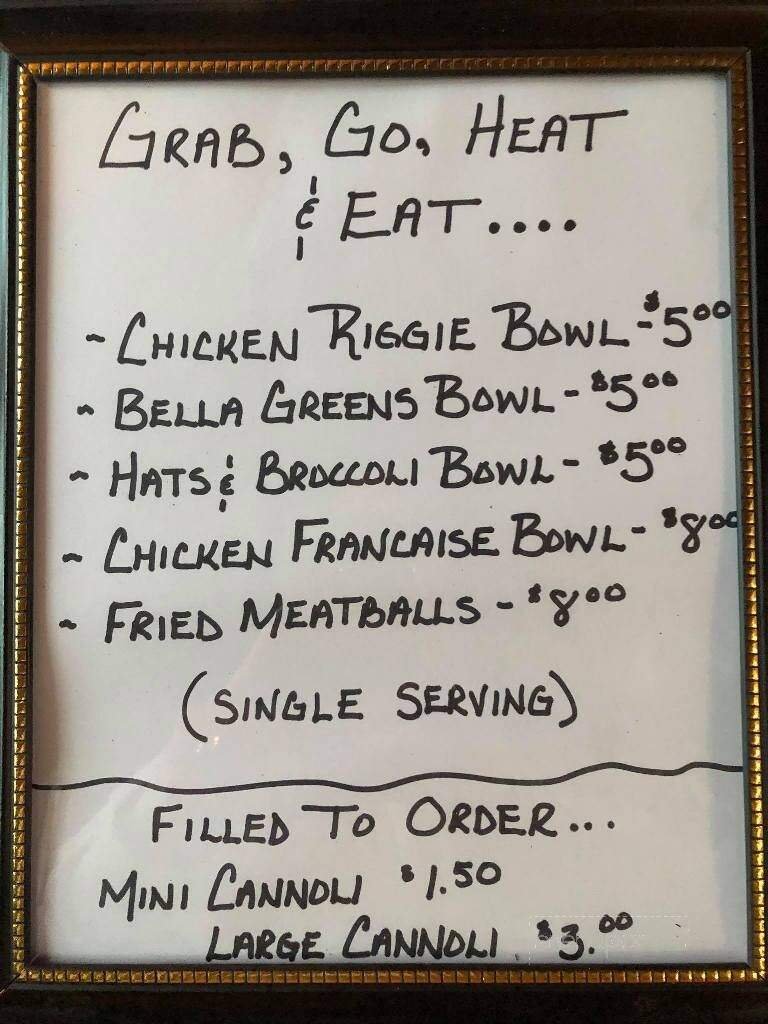 GRAB, GO, HEAT
& EAT....
~ CHICKEN RIGGIE BOWL - $5.00
~ BELLA GREENS BOWL - $5.00
~ HATS & BROCCOLI BOWL - $5.00
~ CHICKEN FRANCAISE BOWL - $8.00
~ FRIED MEATBALLS - $8.00
(SINGLE SERVING)
FILLED TO ORDER...
MINI CANNOLI $1.50
LARGE CANNOLI $3.00